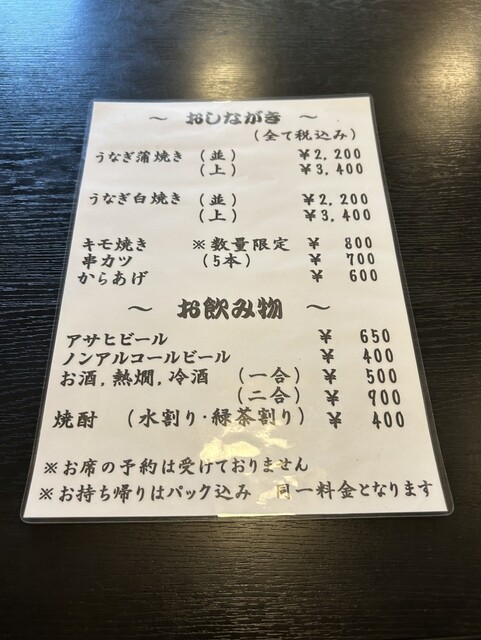 ～ おしながき ～
（全て税込み）
うなぎ蒲焼き （並） ￥2,200
（上） ￥3,400
うなぎ白焼き （並） ￥2,200
（上） ￥3,400
キモ焼き ※数量限定 ￥ 800
串カツ （5本） ￥ 700
からあげ ￥ 600
～ お飲み物 ～
アサヒビール ￥ 650
ノンアルコールビール ￥ 400
お酒,熱燗,冷酒 （一合） ￥ 500
（二合） ￥ 900
焼酎 （水割り・緑茶割り） ￥ 400
※お席の予約は受けておりません
※お持ち帰りはパック込み 同一料金となります